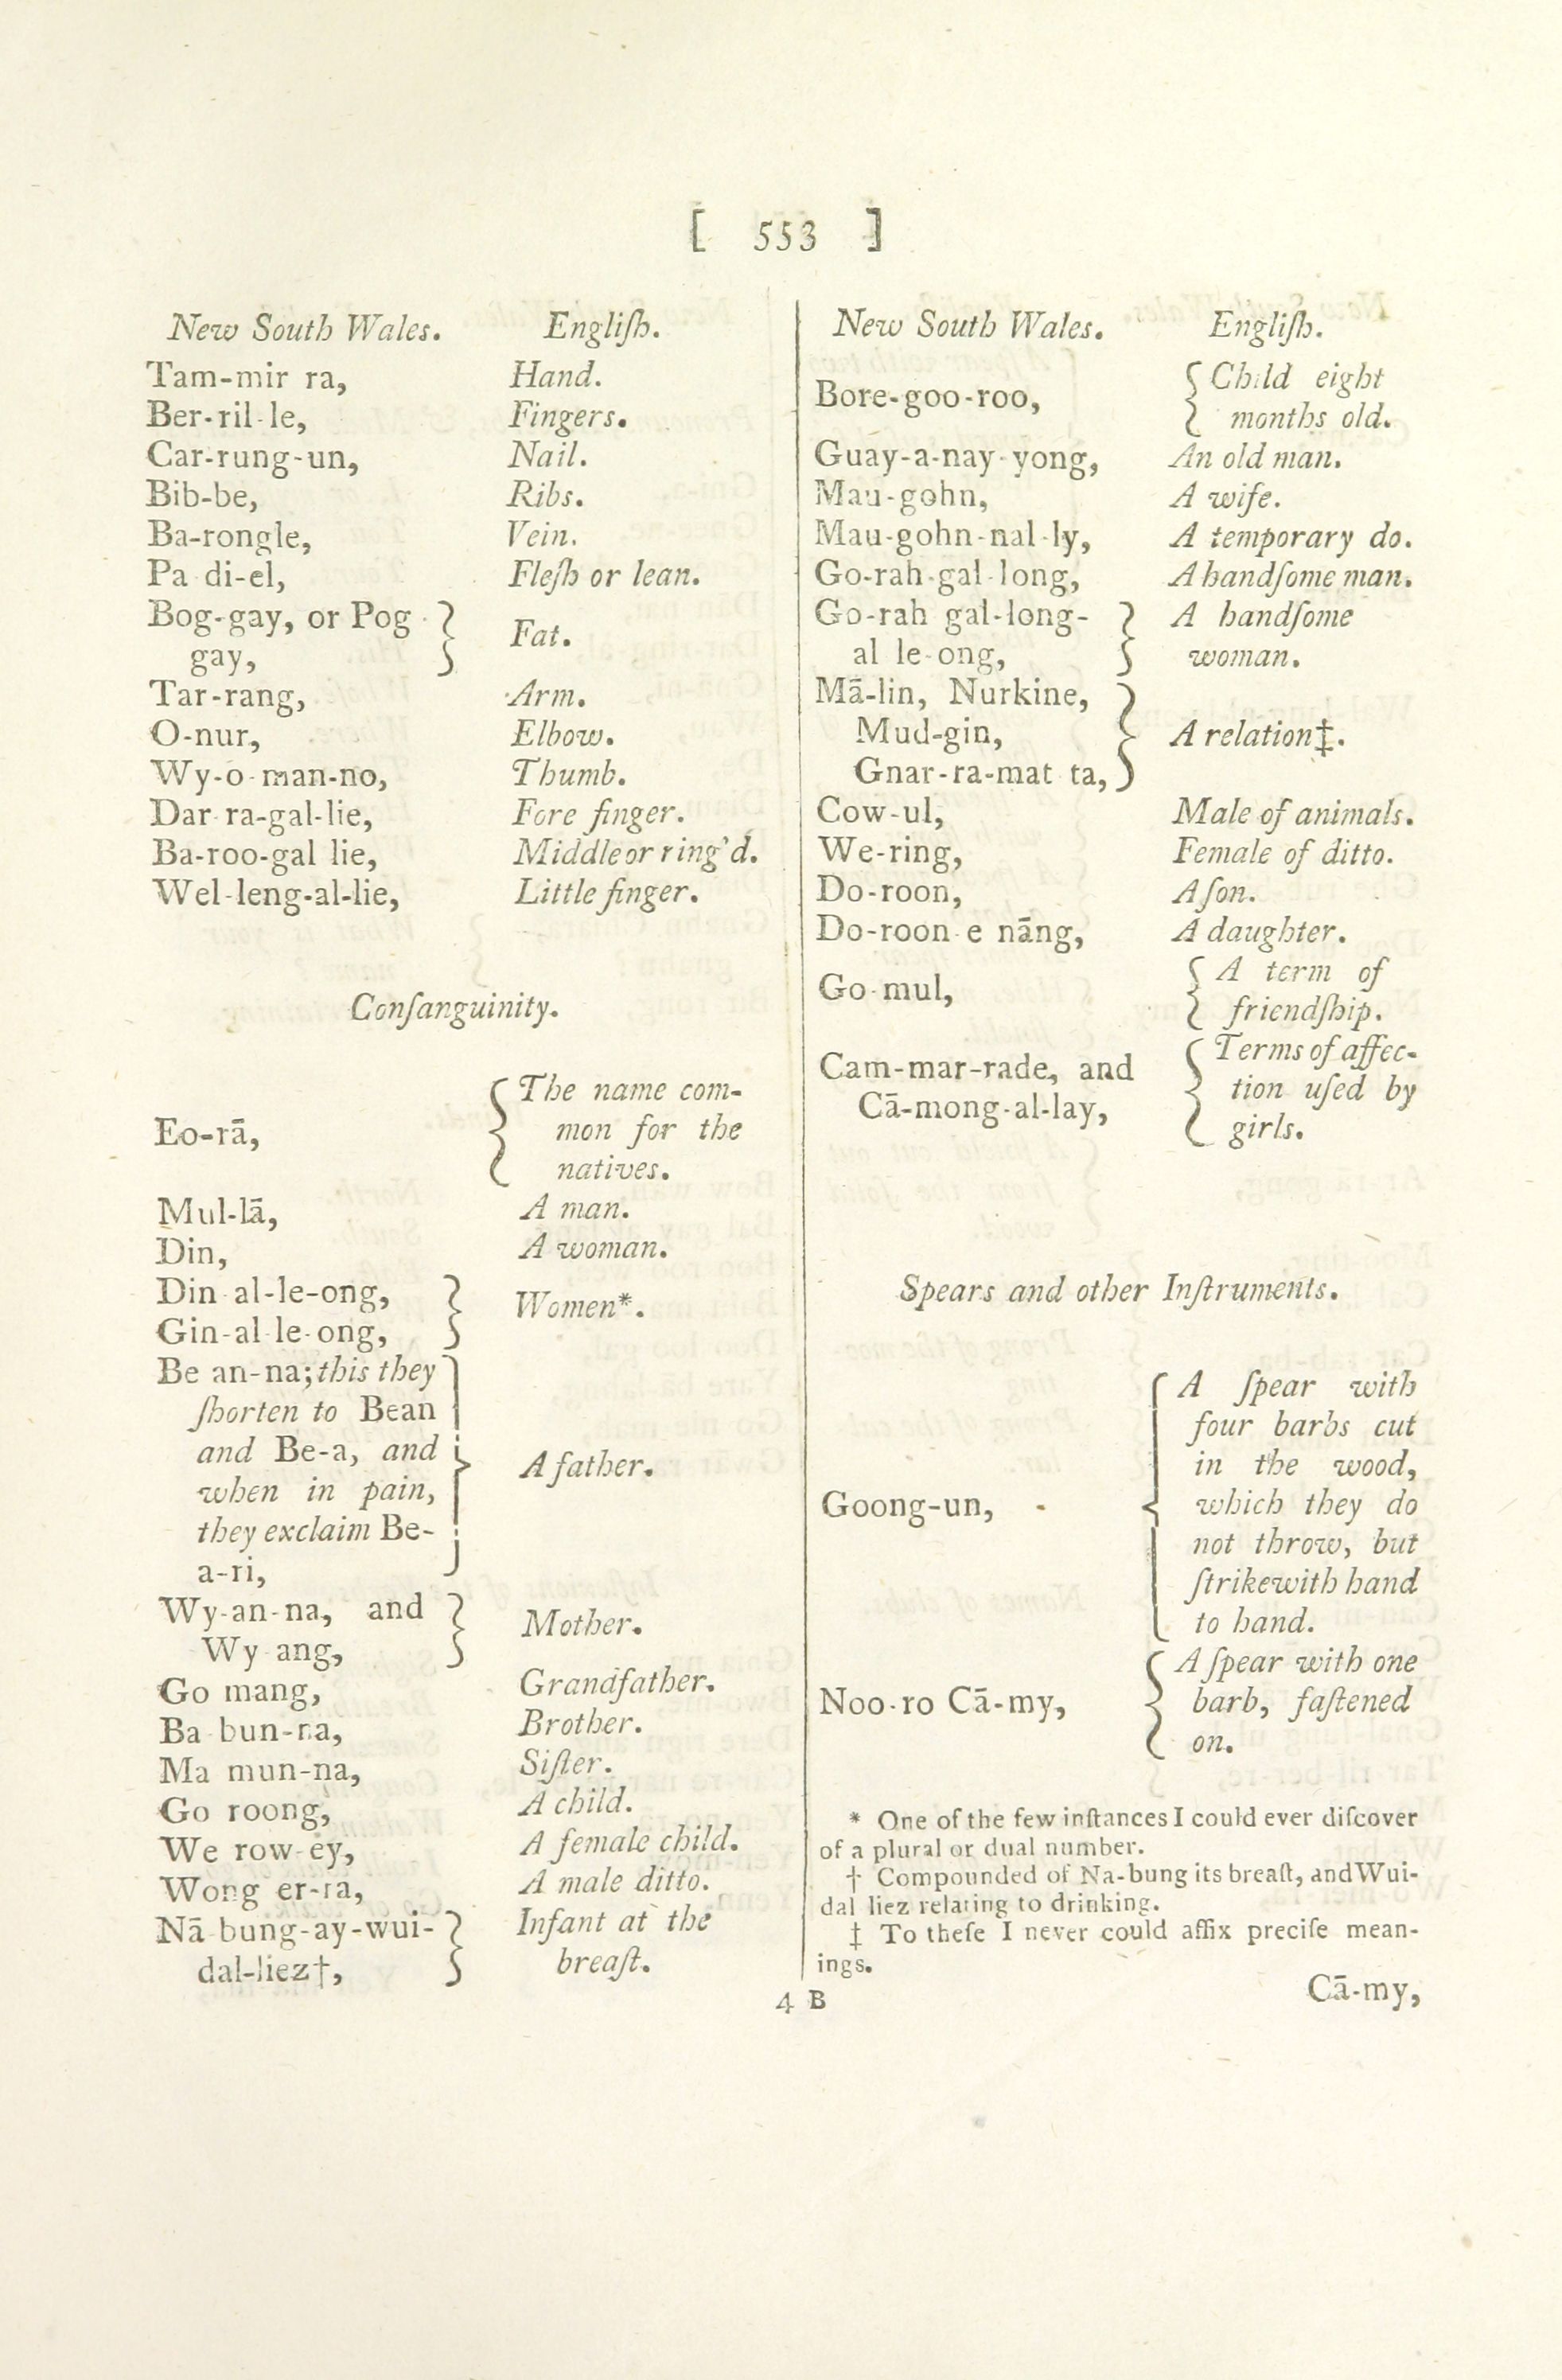 [ 553 ]
New South Wales. Engliſh.
Tam-mir ra, Hand.
Ber-ril-le, Fingers.
Car-rung-un, Nail.
Bib-be, Ribs.
Ba-rongle, Vein.
Pa di-el, Fleſh or lean.
Bog-gay, or Pog
gay, Fat.
Tar-rang, Arm.
O-nur, Elbow.
Wy-o-man-no, Thumb.
Dar ra-gal-lie, Fore finger.
Ba-roo-gal lie, Middle or ring'd.
Wel-leng-al-lie, Little finger.
Conſanguinity.
Eo-rā, The name com-
mon for the
natives.
Mul-lā, A man.
Din, A woman.
Din al-le-ong,
Gin-al le-ong, Women*.
Be an-na; this they
ſhorten to Bean
and Be-a, and
when in pain,
they exclaim Be-
a-ri, A father.
Wy-an-na, and
Wy ang, Mother.
Go mang, Grandfather.
Ba bun-na, Brother.
Ma mun-na, Siſter.
Go roong, A child.
We row-ey, A female child.
Wong er-ra, A male ditto.
Nā bung-ay-wui- Infant at the
dal-liez†, breaſt.
New South Wales. Engliſh.
Bore-goo-roo, Child eight
months old.
Guay-a-nay-yong, An old man.
Mau-gohn, A wife.
Mau-gohn-nal-ly, A temporary do.
Go-rah-gal-long, A handſome man.
Go-rah gal-long- A handſome
al le-ong, woman.
Mā-lin, Nurkine,
Mud-gin, A relation‡.
Gnar-ra-mat ta,
Cow-ul, Male of animals.
We-ring, Female of ditto.
Do-roon, A ſon.
Do-roon-e nāng, A daughter.
Go-mul, A term of
friendſhip.
Cam-mar-rade, and Terms of affec-
Cā-mong-al-lay, tion uſed by
girls.
Spears and other Inſtruments.
Goong-un, A ſpear with
four barbs cut
in the wood,
which they do
not throw, but
ſtrike with hand
to hand.
Noo-ro Cā-my, A ſpear with one
barb, faſtened
on.
* One of the few inſtances I could ever diſcover
of a plural or dual number.
† Compounded of Na-bung its breaſt, and Wui-
dal liez relating to drinking.
‡ To theſe I never could affix preciſe mean-
ings.
4 B Cā-my,